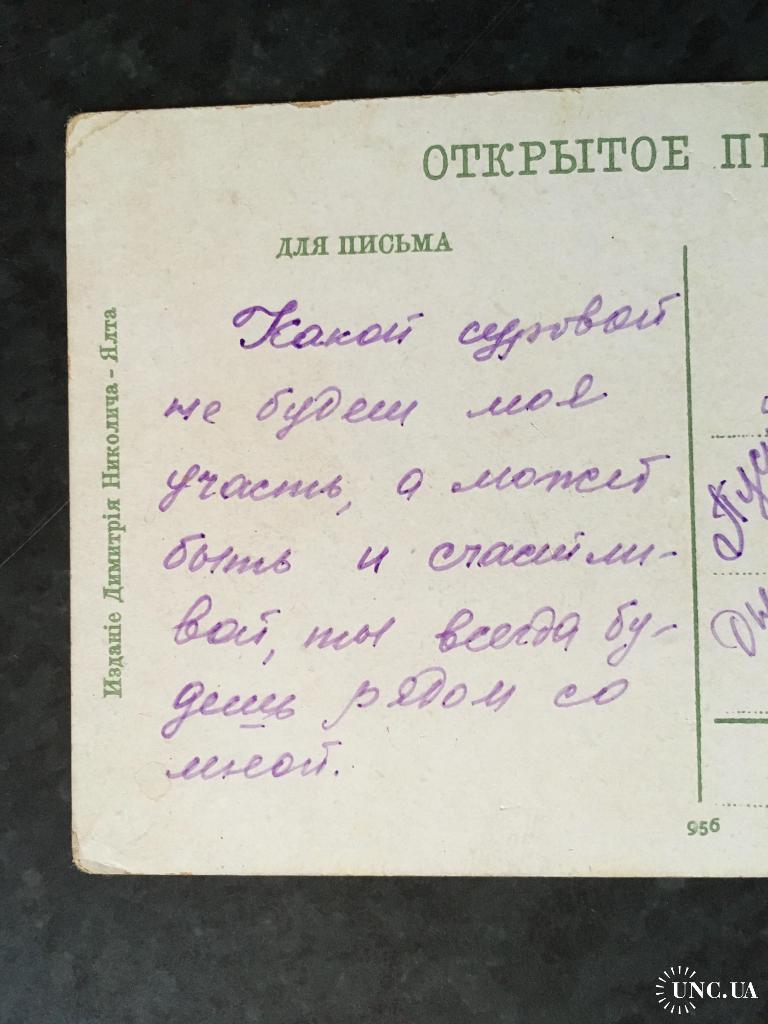 ОТКРЫТОЕ
ДЛЯ ПИСЬМА
Изданіе Димитрія Николича - Ялта
Какой суровой
не будет моя
участь, а может
быть и счастли-
вой, ты всегда бу-
дешь рядом со
мной.
956
UNC.UA